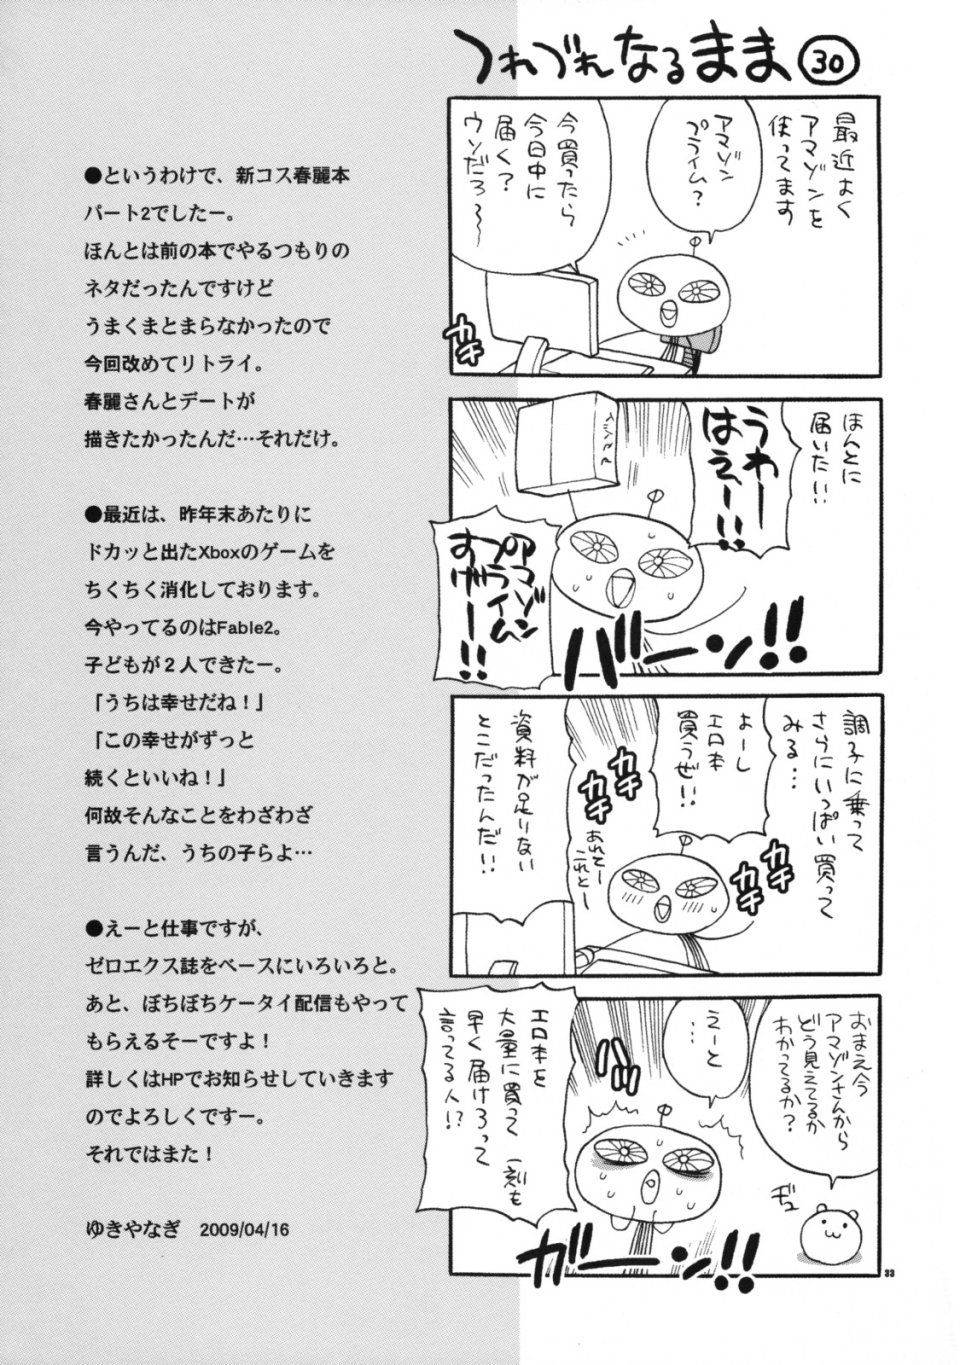 つれづれなるまま㉚
最近よく
アマゾンを
使ってます
アマゾン
プライム?
今買ったら
今日中に
届く?
ウソだろ~
カチ
ほんとに
届いた!!
うわー
はえー!!
アマゾン
プライム
すげー!!
バーン!!
調子に乗って
さらにいっぱい買って
みる…
よーし
エロ本
買うぜ!!
カチカチ
カチカチ
あれとー
これとー
資料が足りない
とこだったんだ!!
おまえ今
アマゾンさんから
どう見えてるか
わかってるか?
えーと
…
エロ本を
大量に買って一刻も
早く届けろって
言ってる人!?
ガーン!!
33
●というわけで、新コス春麗本
パート2でしたー。
ほんとは前の本でやるつもりの
ネタだったんですけど
うまくまとまらなかったので
今回改めてリトライ。
春麗さんとデートが
描きたかったんだ…それだけ。
●最近は、昨年末あたりに
ドカッと出たXboxのゲームを
ちくちく消化しております。
今やってるのはFable2。
子どもが2人できたー。
「うちは幸せだね!」
「この幸せがずっと
続くといいね!」
何故そんなことをわざわざ
言うんだ、うちの子らよ…
●えーと仕事ですが、
ゼロエクス誌をベースにいろいろと。
あと、ぼちぼちケータイ配信もやって
もらえるそーですよ!
詳しくはHPでお知らせしていきます
のでよろしくですー。
それではまた!
ゆきやなぎ 2009/04/16